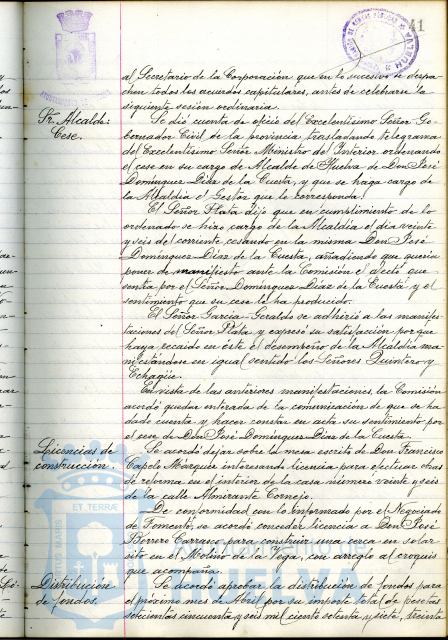 41
al Secretario de la Corporación que en lo sucesivo se despa-
chen todos los acuerdos capitulares, antes de celebrarse la
siguiente sesión ordinaria.
Sr. Alcalde:
Cese.
Se dió cuenta de oficio del Excelentísimo Señor Go-
bernador Civil de la provincia, trasladando telegrama
del Excelentísimo Señor Ministro del Interior ordenando
el cese en su cargo de Alcalde de Huelva de Don José
Domínguez Díaz de la Cuesta, y que se haga cargo de
la Alcaldía el Gestor que le corresponda.
El Señor Plata dijo que en cumplimiento de lo
ordenado se hizo cargo de la Alcaldía el día veinte
y seis del corriente cesando en la misma Don José
Domínguez Díaz de la Cuesta, añadiendo que quería
poner de manifiesto ante la Comisión el afecto que
sentía por el Señor Domínguez Díaz de la Cuesta y el
sentimiento que su cese le ha producido.
El Señor García-Geraldo se adhirió a las manifes-
taciones del Señor Plata y expresó su satisfacción porque
haya recaído en éste el desempeño de la Alcaldía ma-
nifestándose en igual sentido los Señores Quintero y
Echagüe.
En vista de las anteriores manifestaciones, la Comisión
acordó quedar enterada de la comunicación de que se ha
dado cuenta y hacer constar en acta su sentimiento por
el cese de Don José Domínguez Díaz de la Cuesta.
Licencias de
construcción.
Se acordó dejar sobre la mesa escrito de Don Francisco
Capelo Márquez interesando licencia para efectuar obras
de reforma en el interior de la casa número veinte y seis
de la calle Almirante Cornejo.
De conformidad con lo informado por el Negociado
de Fomento, se acordó conceder licencia a Don José
Borrero Carrasco para construir una cerca en solar
sito en el Molino de la Vega, con arreglo al croquis
que acompaña.
Distribución
de fondos.
Se acordó aprobar la distribución de fondos para
el próximo mes de Abril por su importe total de pesetas
seiscientas cincuenta y seis mil ciento setenta y siete,